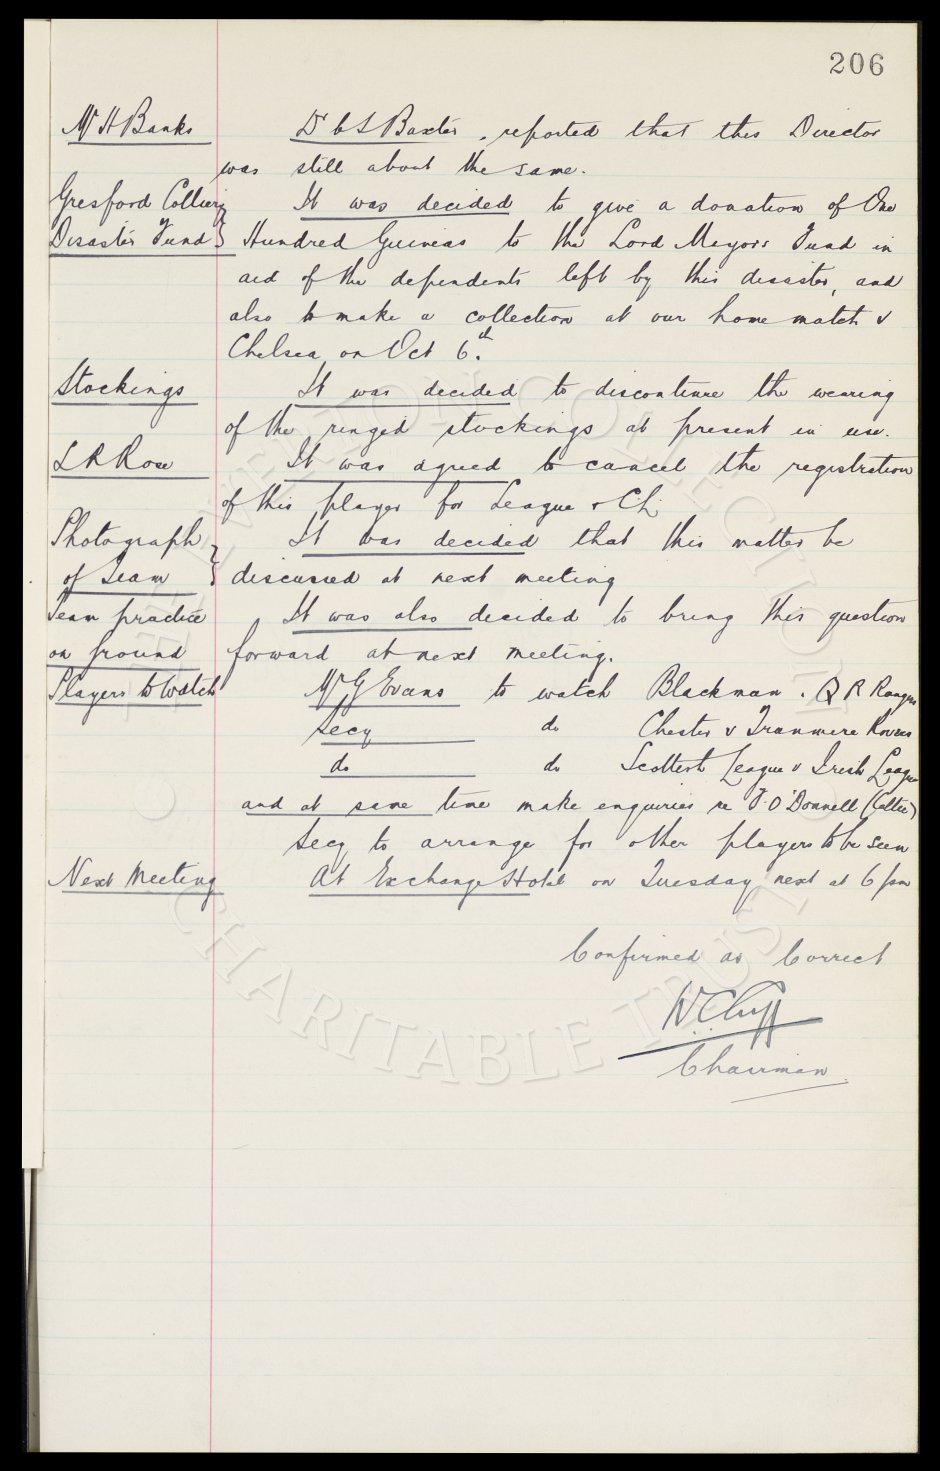 206
Mr H Banks Dr C S Baxter, reported that this Director
was still about the same.
Gresford Colliery It was decided to give a donation of One
Disaster Fund } Hundred Guineas to the Lord Mayors Fund in
aid of the dependents left by this disaster, and
also to make a collection at our home match v
Chelsea on Oct 6th.
Stockings It was decided to discontinue the wearing
of the ringed stockings at present in use.
L R Rose It was agreed to cancel the registration
of this player for League & C.L.
Photograph It was decided that this matter be
of Team } discussed at next meeting
Team practice It was also decided to bring this question
on ground forward at next meeting.
Players to Watch Mr G Evans to watch Blackman. Q R Rangers
Secy do Chester v Tranmere Rovers
do do Scottish League v Irish League
and at same time make enquiries re F. O'Donnell (Celtic)
Secy to arrange for other players to be seen
Next Meeting At Exchange Hotel on Tuesday next at 6 pm
Confirmed as Correct
W.C. Cuff
Chairman
THE EVERTON COLLECTION
CHARITABLE TRUST